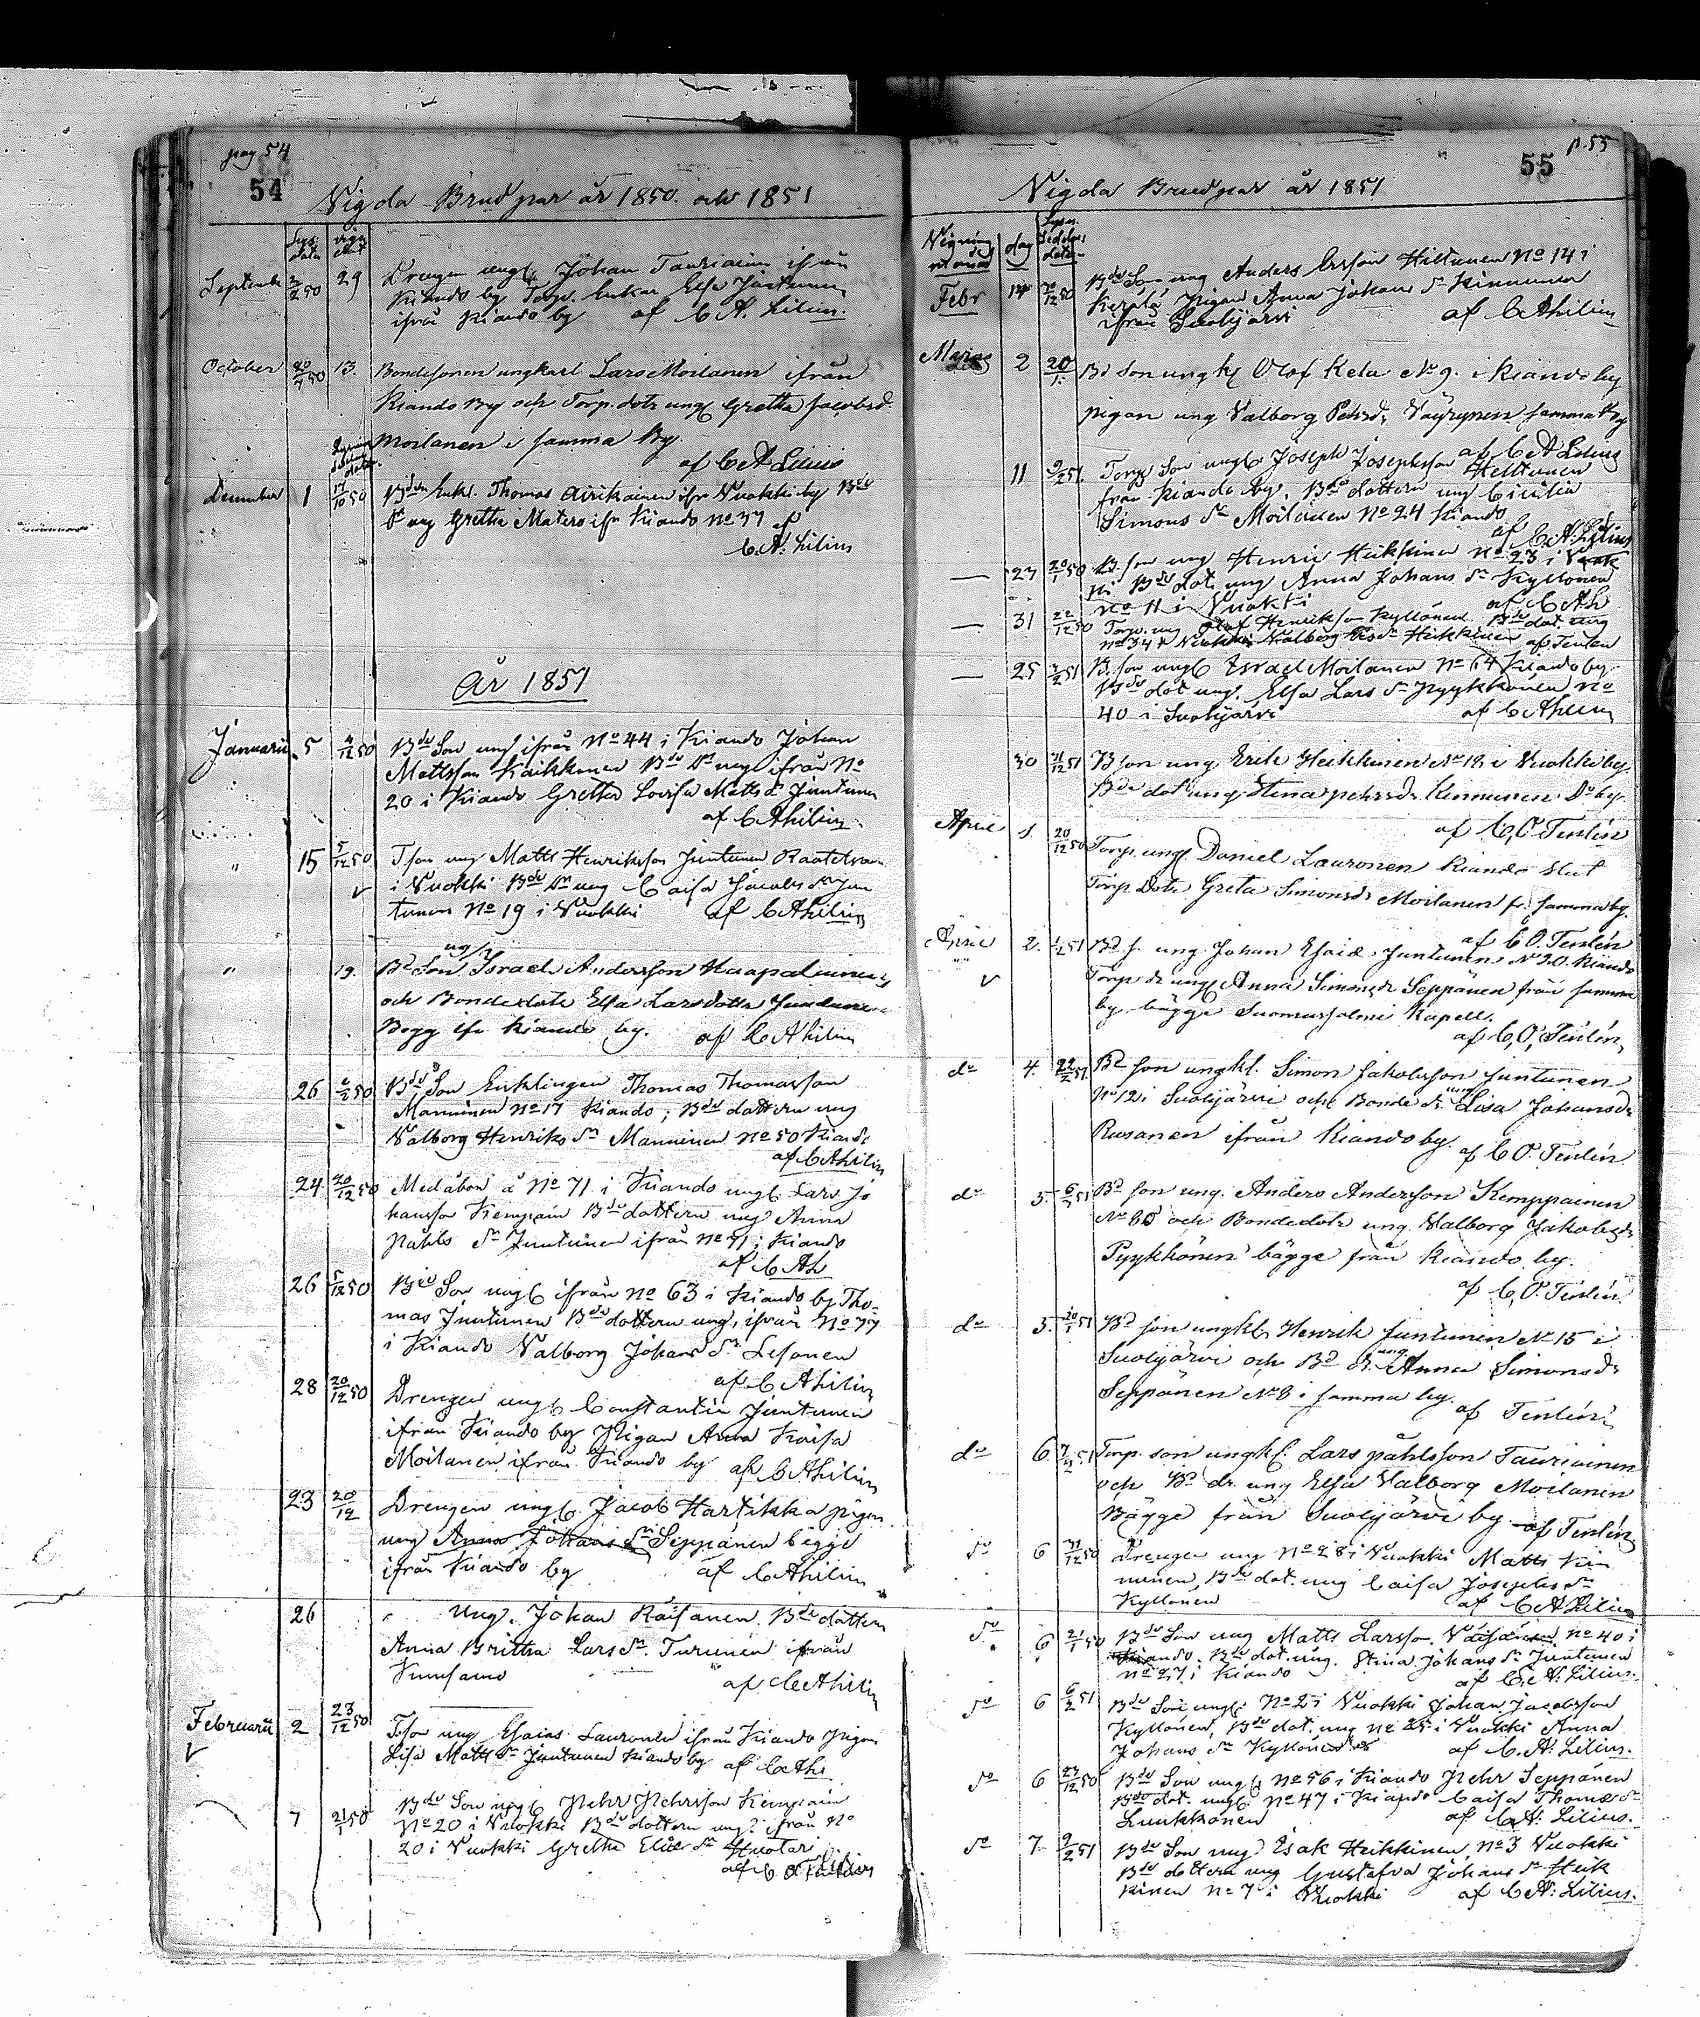 pag 54
54
Vigda Brudpar år 1850 och 1851
Septemb 29 Drengen ungk. Johan Tauriainen ifrån
Kiando by Torp. Enkan Elsa Juntunen
ifrån Kiando by af C A. Lilius.
October 20/7 50 13. Bondesonen ungkarl Lars Moilanen ifrån
Kiando By och Torp. dotr ung Gretha Jacobsd.
Moilanen i samma By.
af C A Lilius
December 1 17/10 50 Enkl. Thomas Airikainen ifr Vuokki by Bde
Dr ung Gretha Matero ifr Kiando no 37 af
C. A. Lilius
År 1851
Januarii 5 4/12 50 Bde Son ungk ifrån No 44 i Kiando Johan
Mattsson Kaikkonen Bde Dr ung ifrån No
20 i Kiando Gretha Lovisa Matts dr Juntunen
af C A Lilius.
" 15 5/12 50 T son ung Matts Henriksson Juntunen
i Vuokki Bde Dr ung Caisa Jacobs dr Jun
tunen No 19 i Vuokki af C A Lilius
" 19. Bd Son ungk Israel Andersson Kaapalainen
och Bondedotr Elsa Larsdottr Juntunen
Begg ifr Kiando by. af C A Lilius
26 50 Bde Son Enklingen Thomas Thomasson
Manninen No 17 Kiando; Bde dottern ung
Valborg Henriks dr Manninen No 50 Kiando
af C A Lilius
24 20/12 50 Medåbon å No 71 i Kiando ungk Lars Jo
hansson Kempain Bde dottern ung Anna
Påhls dr Juntunen ifrån No 71 i Kiando
af C A L
26 5/12 50 Bde Son ungk ifrån No 63 i Kiando by Tho-
mas Juntunen Bde dottern ung. ifrån No 77
i Kiando Valborg Johans dr Lesonen
af C A Lilius
28 20/12 50 Drengen ungk Constantin Juntunen
ifrån Kiando by Pigan Anna Kaisa
Moilanen ifrån Kiando by af C A Lilius
23 20/12 Drengen ungk Jacob Hartikka pigan
ung Anna Johans dr Seppänen bägge
ifrån Kiando by af C A Lilius
26 " Ung. Johan Räisänen Bde dottern
Anna Britha Lars dr. Turunen ifrån
Kuusamo af C A Lilius
Februarii 2 23/12 50 T son ung Esaias Lauronen ifrån Kiando Pigan
Lisa Matts dr Juntunen Kiando by af C A L
7 21/1 50 Bde Son ungk Pehr Pehrsson Kempain
No 20 i Vuokki Bde dottern ung ifrån No
20 i Vuokki Gretha Elias dr Huotari
af C A Lilius
p. 55
55
Vigda Brudpar år 1851
Vignings månad dag
Febr 14 20/12 50 Bde Son ung Anders Ersson Hiltunen No 14 i
Kerälä Pigan Anna Johans dr Kinnunen
ifrån Suolijärvi af C A Lilius
Mars 2 20/1. Bd Son ungk Olof Kela No 9. i Kiando by
pigan ung Valborg Pehrsd. Väyrynen samma by
af C A Lilius
11 9/2 51. Torp Son ungk Joseph Josephsson Heltunen
från Kiando by, Bde dottern ung Cicilia
Simons dr Moilanen No 24 Kiando
af C. A. Lilius
— 23 20/1 50 B. son ung Henric Heikkinen No 23 i Vuok
ki Bde dot. ung Anna Johans dr Kyllönen
No 11 i Vuokki af C A L
— 31 22/12 50 Torp. ung Olof Henriksson Kyllönen Bde dot. ung
No 34 i Vuokki Valborg Heikkinen af Tenlen
— 25 2/2 51 B. son ungk Israel Moilanen No 64 Kiando by
Bde dot ung. Elsa Lars dr Pyykkönen No
40 i Suolijärvi af C A Lilius
30 31/12 51 B son ung Erik Heikkinen No 18 i Vuokki by.
Bde dotr ung Stina pehrsdr Kinnunen Do by.
af C, O. Tenlén
April 1. 20/12 50 Torp. ungk Daniel Lauronen Kiando
Torp. Dotr Greta Simonsdr Moilanen fr samma by.
af C O. Tenlén
April 2. 1/2 51 Bd s. ung Johan Esaiæ Juntunen No 20. Kiando
Torp dr ung Anna Simonsdr Seppänen från samma
by bägge Suomusjalmi Kapell.
af C, O, Tenlén,
do 4. 22/2 51 Bd son ungkl. Simon Jakobsson Juntunen
No 12 i Suolijärvi och Bonde dr. ung Lisa Johansdr
Rusanen ifrån Kiando by. af C O. Tenlén
do 5. 6/2 51 Bd son ung. Anders Andersson Kemppainen
No 80 och Bondedotr ung Valborg Jakobsdr
Pyykkönen bägge från Kiando by.
af C, O. Tenlén.
do 5. 20/1 51 Bd son ungkl. Henrik Juntunen No 15 i
Suolijärvi och Bd dr. ung Anna Simonsdr
Seppänen No 8 i samma by. af Tenlén
do 6. 51 Torp. son ungkl. Lars påhlsson Tauriainen
och Bd dr. ung Elsa Valborg Moilanen
Bägge från Suolijärvi by af Tenlén
do 6 31/12 50 Drengen ung No 28 i Vuokki Matts Kin
nunen, Bde dot. ung Caisa Josephs dr
Kyllönen af C A Lilius
do 6 21/1 50 Bde Son ung Matts Larsson Väisänen No 40 i
Kiando. Bde dot. ung. Stina Johans dr Juntunen
No 27 i Kiando af C. A. Lilius.
do 6 6/2 51 Bde Son ungk. No 2 i Vuokki Johan Jacobsson
Kyllönen, Bde dot. ung No 25 i Vuokki Anna
Johans dr Kyllönen af C. A. Lilius.
do 6 23/12 50 Bde Son ungk No 56 i Kiando Pehr Seppänen
Bde dot. ungk. No 47 i Kiando Caisa Thomæ dr
Luukkonen af C. A. Lilius.
do 7. 9/2 51 Bde Son ung Isak Heikkinen, No 3 Vuokki
Bde dottern ung Gustafva Johans dr Heik
kinen No 7 i Vuokki af C A. Lilius.